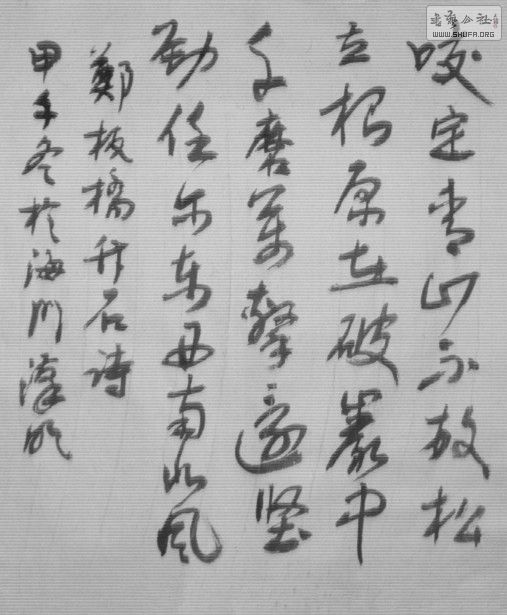 咬定青山不放松
立根原在破巖中
千磨萬擊還坚
劲任尔东西南北风
鄭板橋竹石詩
甲午冬於海门
書藝公社
WWW.SHUFA.ORG